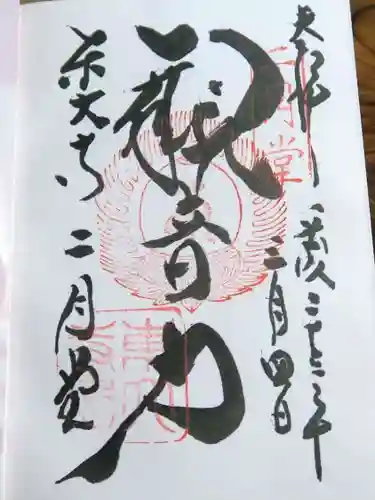 奉拝 平成二十三年
三月四日
観音力
東大寺 二月堂
二月堂